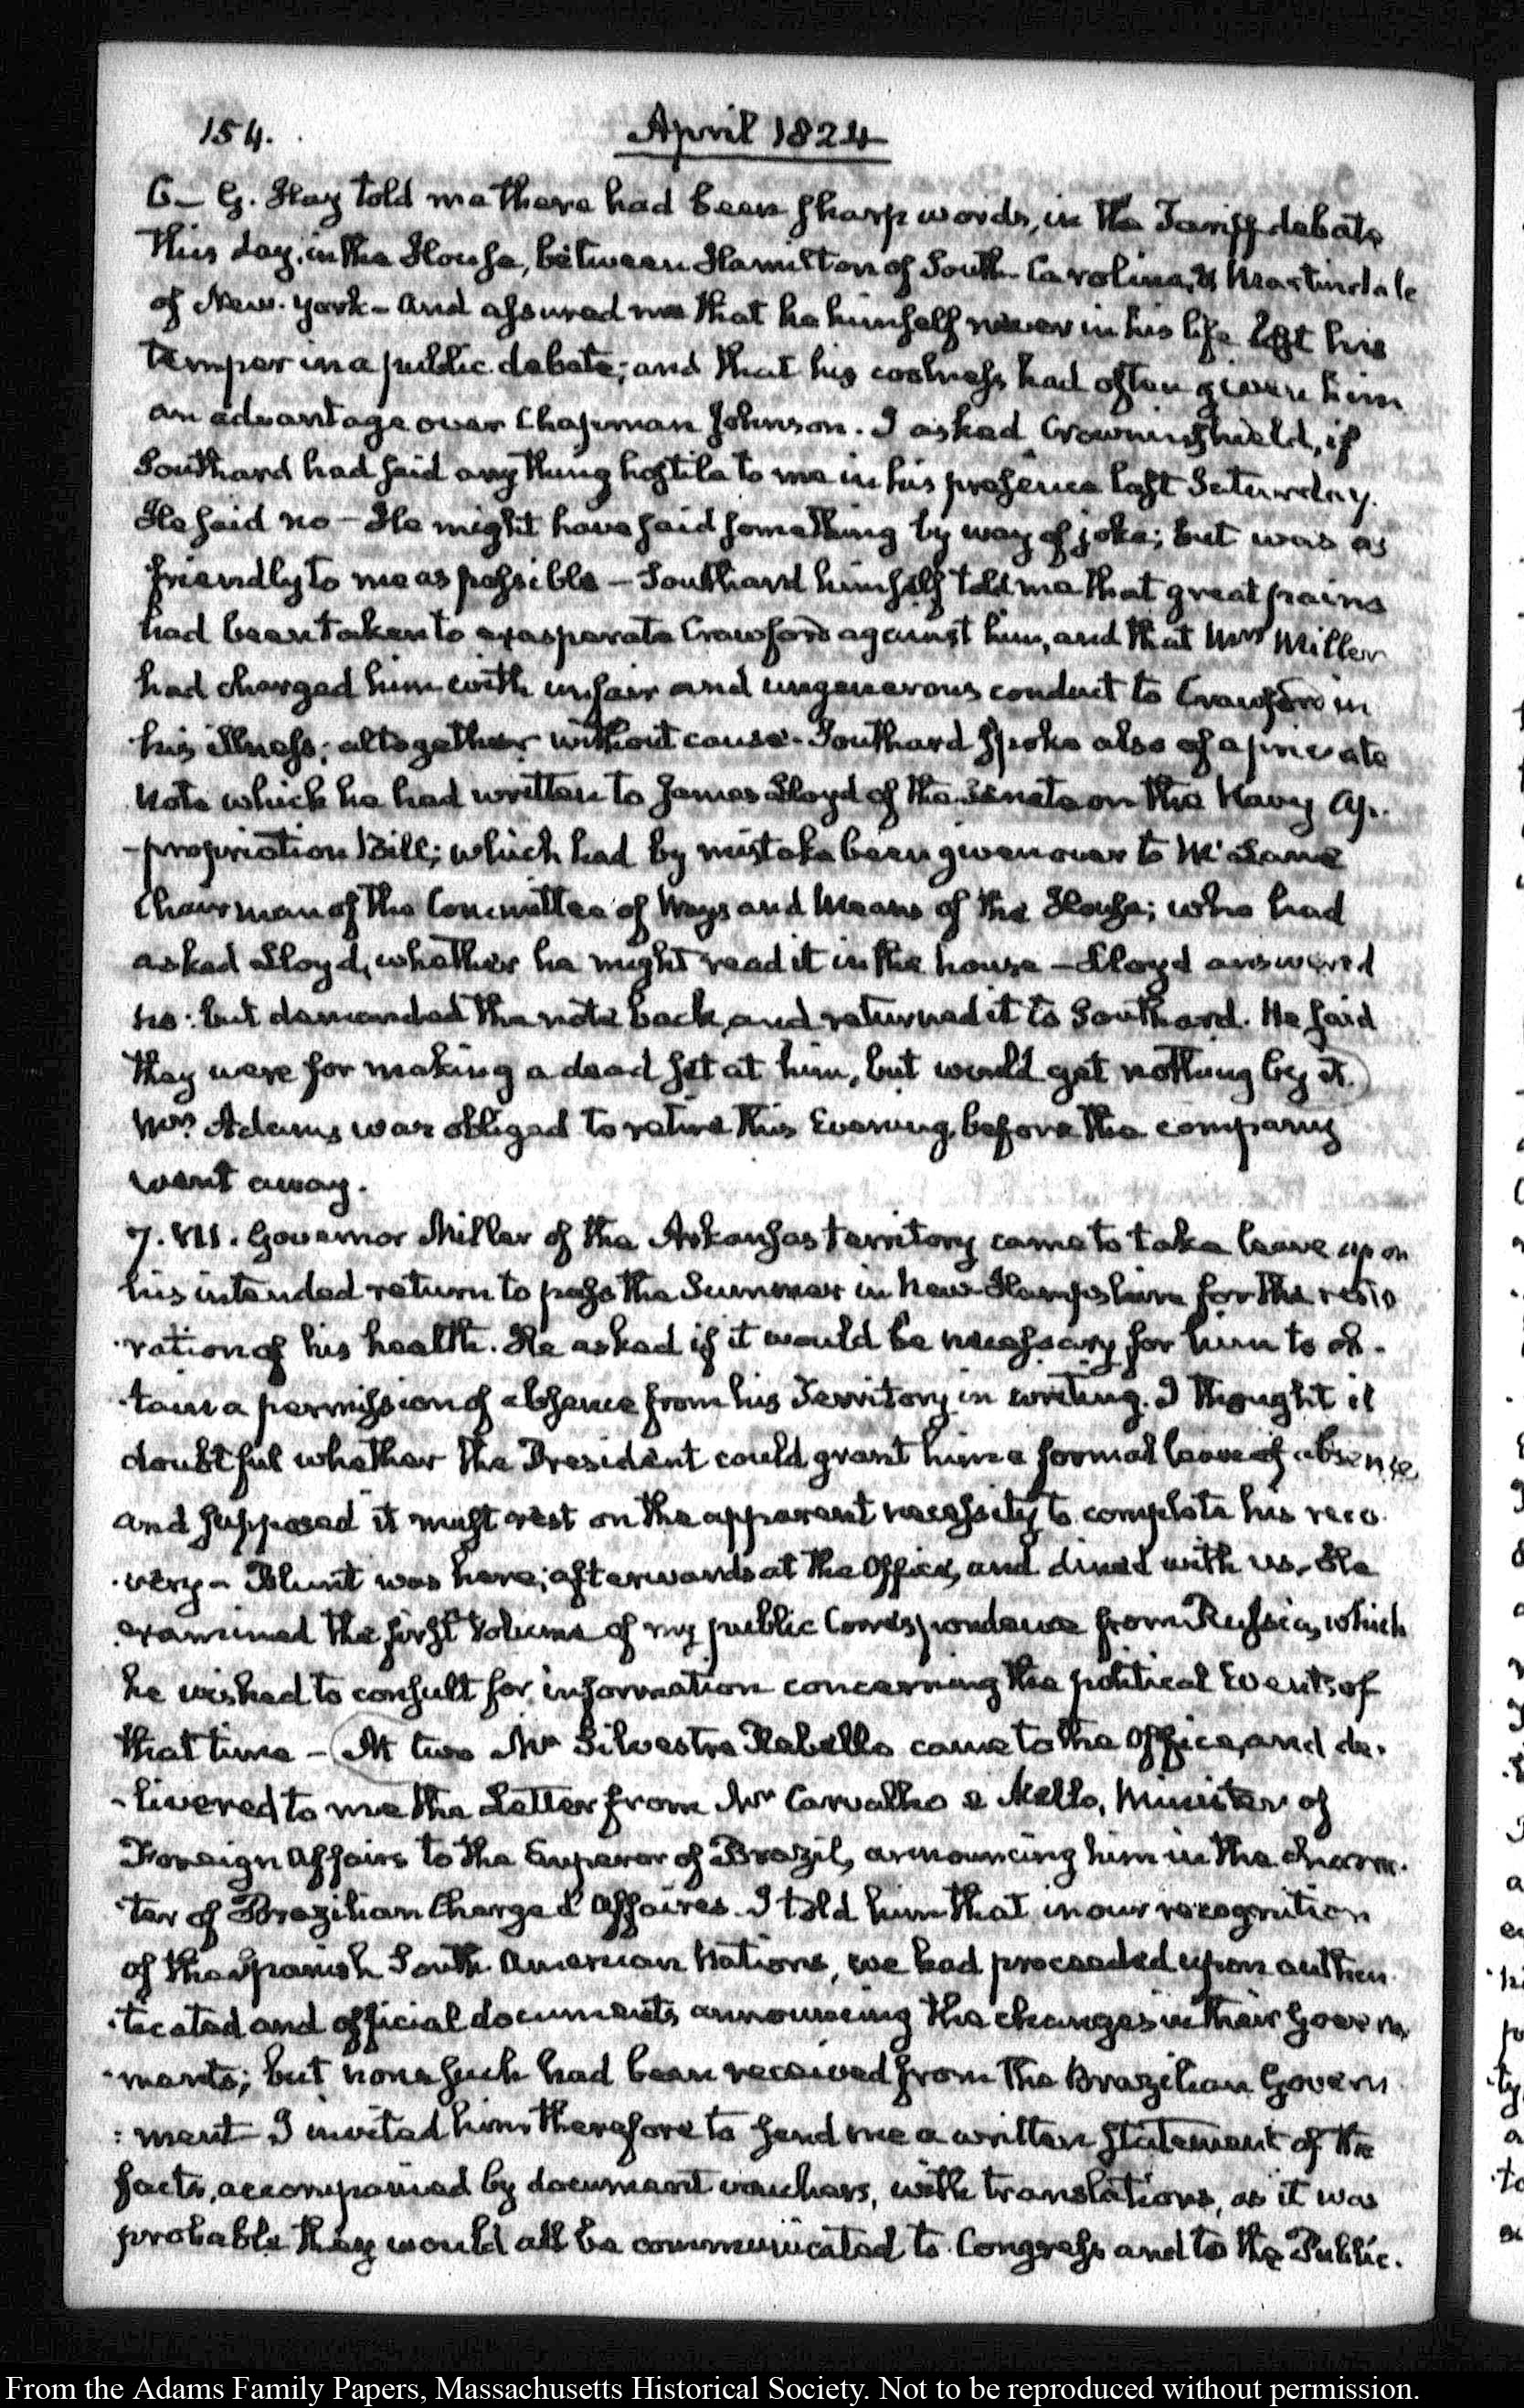 154.
April 1824
6– G. Hay told me there had been sharp words, in the Tariff debate
this day, in the House, between Hamilton of South-Carolina, & Martindale
of New-York – and assured me that he himself never in his life lost his
temper in a public debate; and that his coolness had often given him
an advantage over Chapman Johnson. I asked Crowninshield, if
Southard had said any thing hostile to me in his presence last Saturday.
He said no – He might have said something by way of joke; but was as
friendly to me as possible – Southard himself told me that great pains
had been taken to exasperate Crawford against him, and that Mrs Miller
had charged him with unfair and ungenerous conduct to Crawford in
his illness; altogether without cause – Southard spoke also of a private
Note which he had written to James Lloyd of the Senate on the Navy Ap-
-propriation Bill; which had by mistake been given over to McLane
Chairman of the Committee of Ways and Means of the House; who had
asked Lloyd, whether he might read it in the house – Lloyd answered
no: but demanded the note back, and returned it to Southard. He said
they were for making a dead set at him, but would get nothing by it.
Mrs. Adams was obliged to retire this Evening, before the company
went away.
7. VII. Governor Miller of the Arkansas territory came to take leave upon
his intended return to pass the Summer in New-Hampshire for the resto
-ration of his health. He asked if it would be necessary for him to ob-
-tain a permission of absence from his Territory in writing. I thought it
doubtful whether the President could grant him a formal leave of absence,
and supposed it must rest on the apparent necessity to complete his reco-
-very – Blunt was here; afterwards at the Office, and dined with us. He
examined the first volume of my public Correspondence from Russia, which
he wished to consult for information concerning the political Events of
that time – At two Mr Silvestre Rebello came to the Office, and de-
-livered to me the Letter from Mr Carvalho e Mello, Minister of
Foreign Affairs to the Emperor of Brazil, announcing him in the charac-
-ter of Brazilian Chargé d'Affaires. I told him that in our recognition
of the Spanish South American Nations, we had proceeded upon authen-
-ticated and official documents announcing the changes in their Govern-
-ments; but none such had been received from the Brazilian Govern-
:ment I invited him therefore to send me a written statement of the
facts, accompanied by document vouchers, with translations, as it was
probable they would all be communicated to Congress and to the Public.
From the Adams Family Papers, Massachusetts Historical Society. Not to be reproduced without permission.